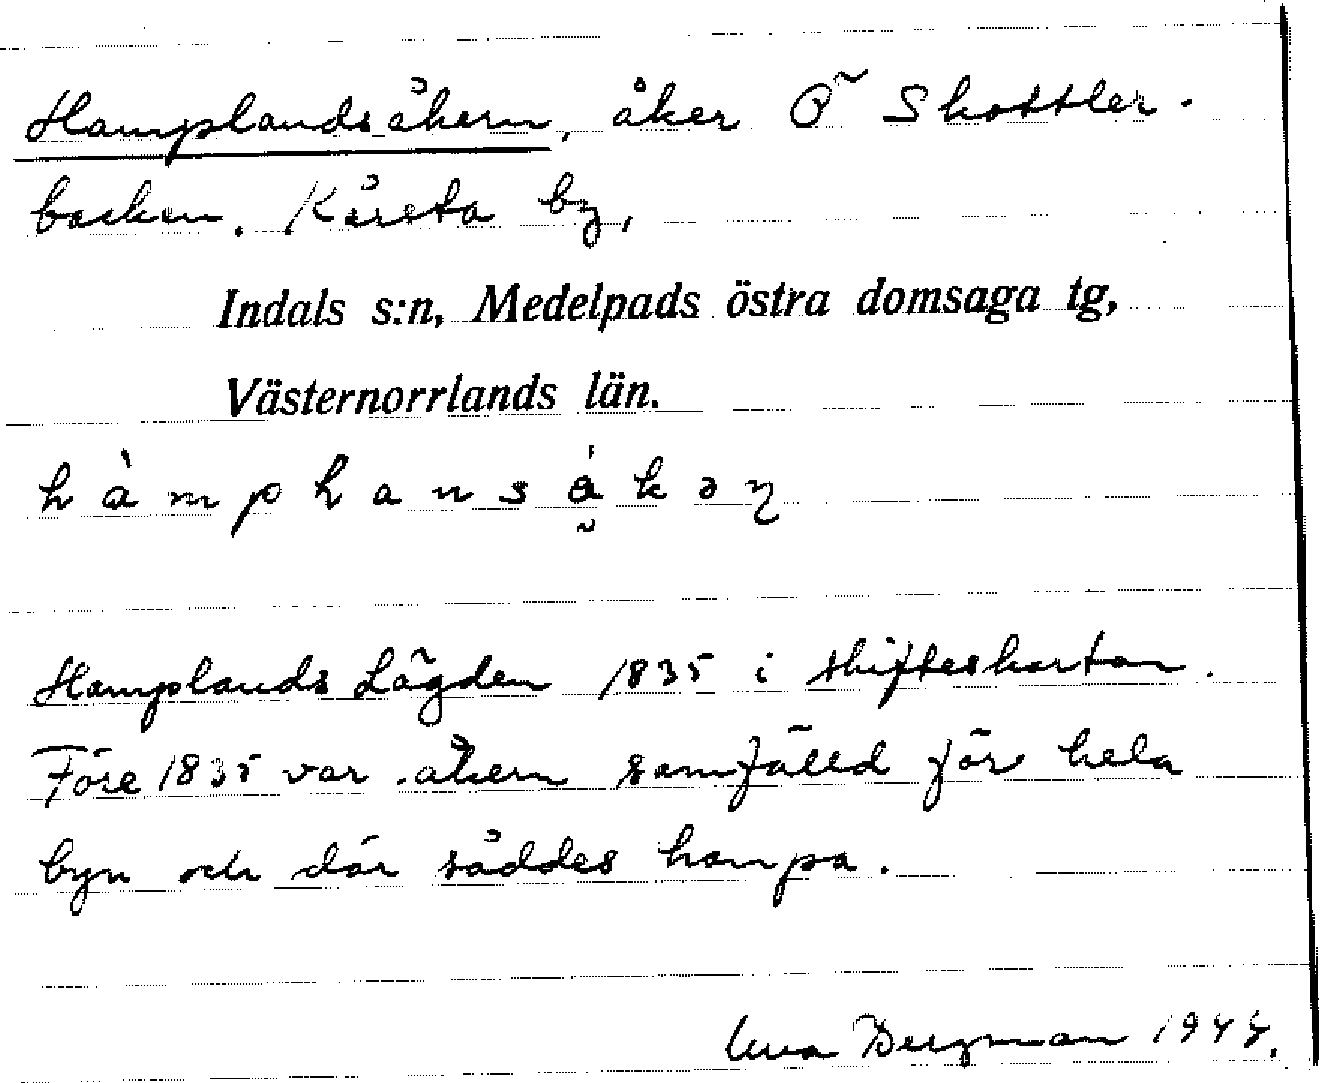 Hamplandsåkern, åker Ö Skottler-
backen. Kårsta by,
Indals s:n, Medelpads östra domsaga tg,
Västernorrlands län.
h à m p l a n s å̀ k ə ɳ
Hamplands Lägden 1835 i skifteskartan.
Före 1835 var åkern samfälld för hela
byn och där såddes hampa.
Bergman 1944.